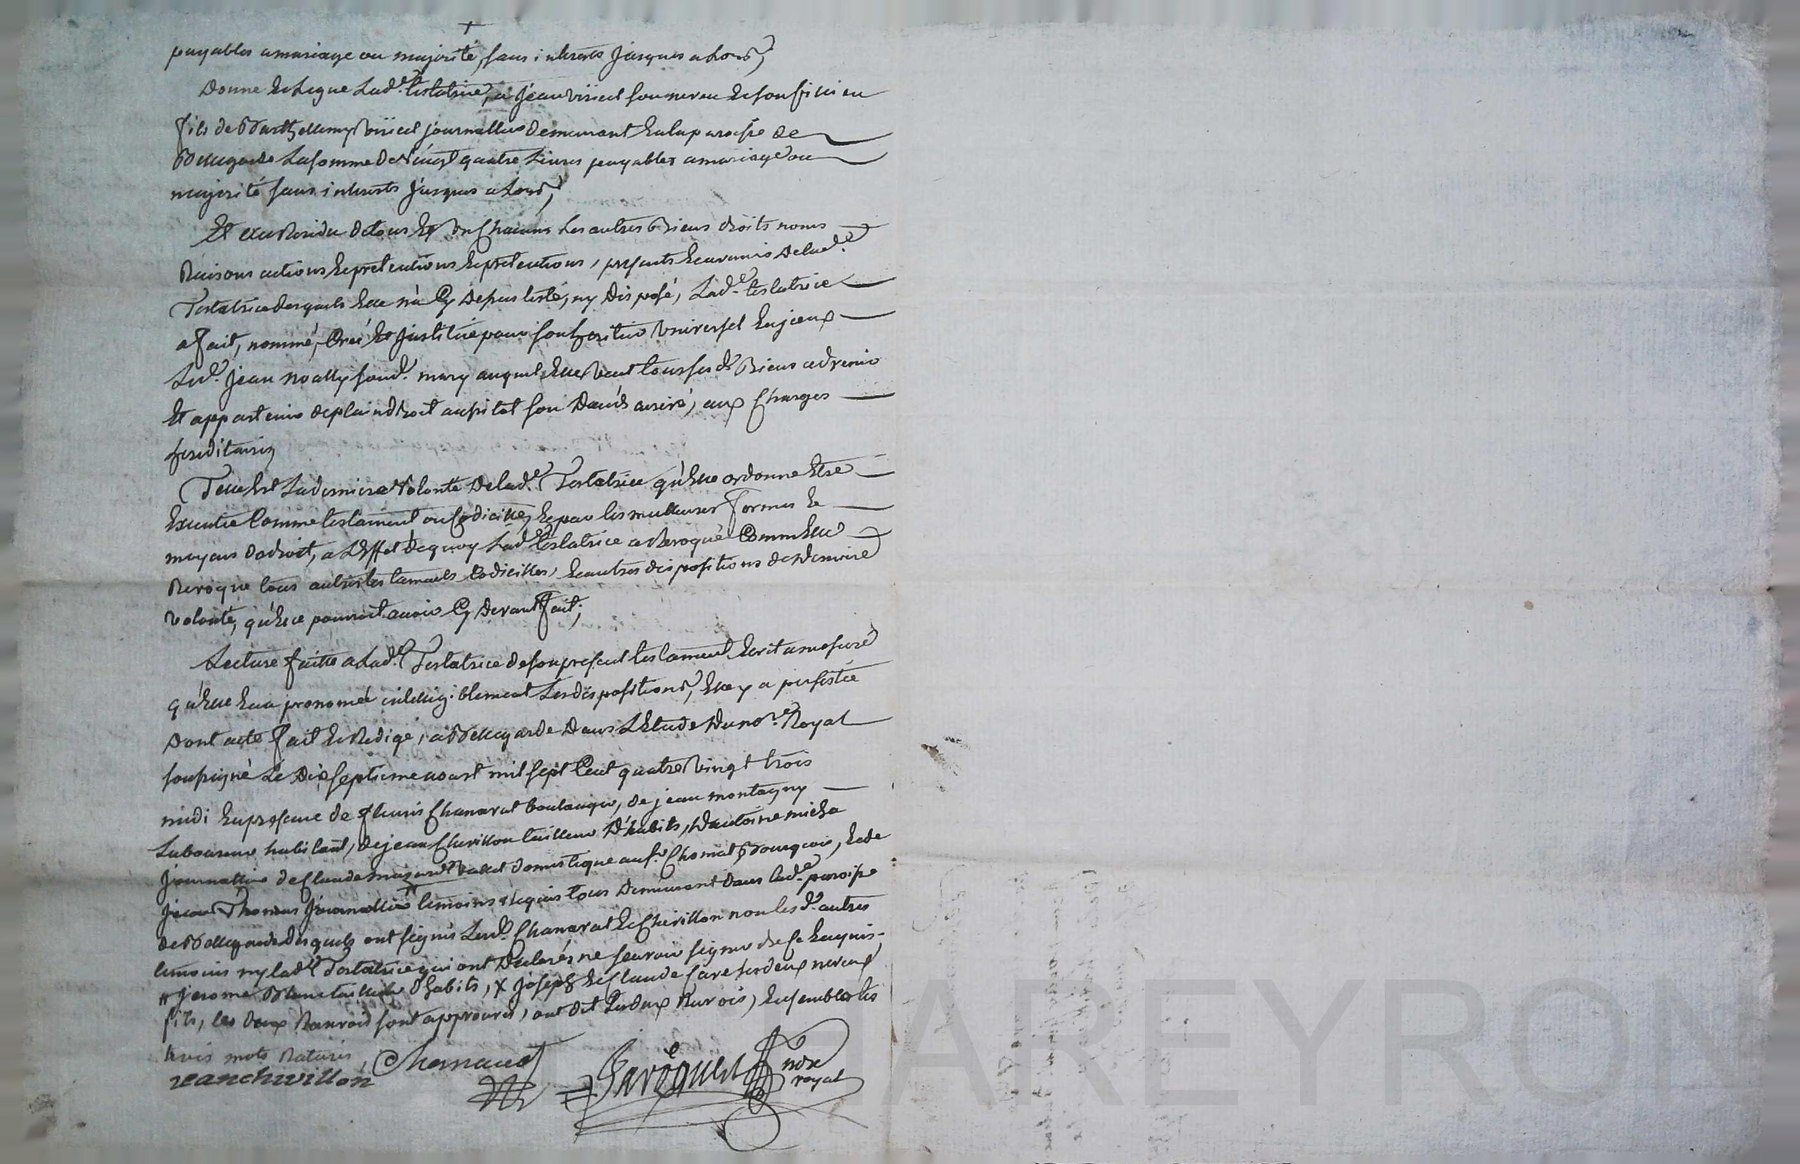 payables a mariage ou majorité, sans interests jusques alors,
Donne et Legue Lad.e testatrice, a jean viricel son neveu et son filleu
fils de Barthellemy viricel journallier demeurant en la paroisse de
Bellegarde La somme de vingt quatre Livres payables a mariage ou
majorité sans interests jusques alors,
Et au Residu de tous et un Chacuns Les autres Biens droits noms
Raisons actions et pretentions et pretentions, presents et avenir De lad.e
Testatrice desquels Elle n'a Cy Dessus testé, ny disposé, Lad.e testatrice
a fait, nommé, Créé et Institué pour son heritier universel
Led.t jean noally son d.t mary auquel Elle veut tous ses d.ts Biens advenir
Et appartenir de plain droit aussitot son Décès arivé, aux Charges
hereditaires
Telle Est La derniere volonté De lad.e Testatrice qu'Elle ordonne Etre
Executée Comme testament ou Codicille, et par les meilleures formes et
moyens de droit, a L'Effet de quoy Lad.e testatrice a Revoqué Comme Elle
Revoque tous autres testaments Codicilles, et autres dispositions de derniere
volonté, qu'Elle pourroit avoir Cy devant fait;
Lecture faitte a Lad.e Testatrice de son present testament Ecrit a mesure
qu'Elle En a prononcé intelligiblement Les dispositions, Elle y a persistée
Dont acte fait et Redigé, a Bellegarde Dans L'Etude Du no.re Royal
soussigné Le Dix septieme aoust mil sept Cent quatre vingt trois
midi En presence de fleuris Chanavat boulanger, de jean montagny
Laboureur habitant, de jean Chevillon tailleur D'habits, d'antoine micha
journallier de Claude vallet domestique au s.r Chomat Bourgeois, et de
jean Thomas journallier temoins requis tous Demeurant dans lad.e paroisse
de Bellegarde desquels ont signés Lesd.ts Chanavat et Chevillon non les d.ts autres
temoins ny lad.e Testatrice qui ont Declarés ne scavoir signer de ce Enquis
jerome Blanc tailleur d'habits, x joseph et Claude favre ses deux neveux
fils, les deux Renvois sont approuvés, ont dit Les deux Renvois, Ensemble les
trois mots Raturés
jean chevillon Chanavat not.re royal